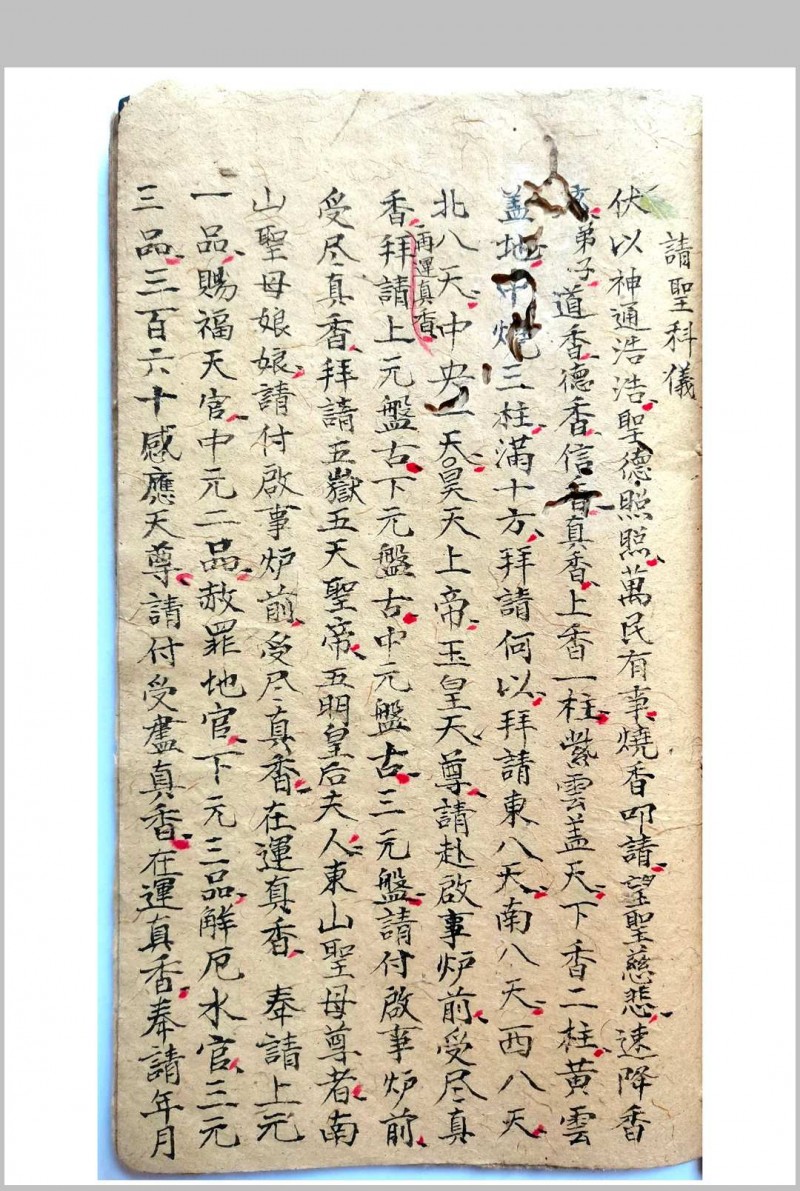 請聖科儀
伏以神通浩浩聖德照照萬民有事燒香叩請望聖慈悲速降香
弟子道香德香信香真香上香一柱紫雲盖天下香二柱黃雲
盖地中燒三柱滿十方拜請何以拜請東八天南八天西八天
北八天中央一天昊天上帝玉皇天尊請赴啟事炉前受尽真
香再運真香拜請上元盤古下元盤古中元盤古三元盤請付啟事炉前
受尽真香拜請五嶽五天聖帝五明皇后夫人東山聖母尊者南
山聖母娘娘請付啟事炉前受尽真香在運真香奉請上元
一品賜福天官中元二品赦罪地官下元三品解厄水官三元
三品三百六十感應天尊請付受盡真香在運真香奉請年月